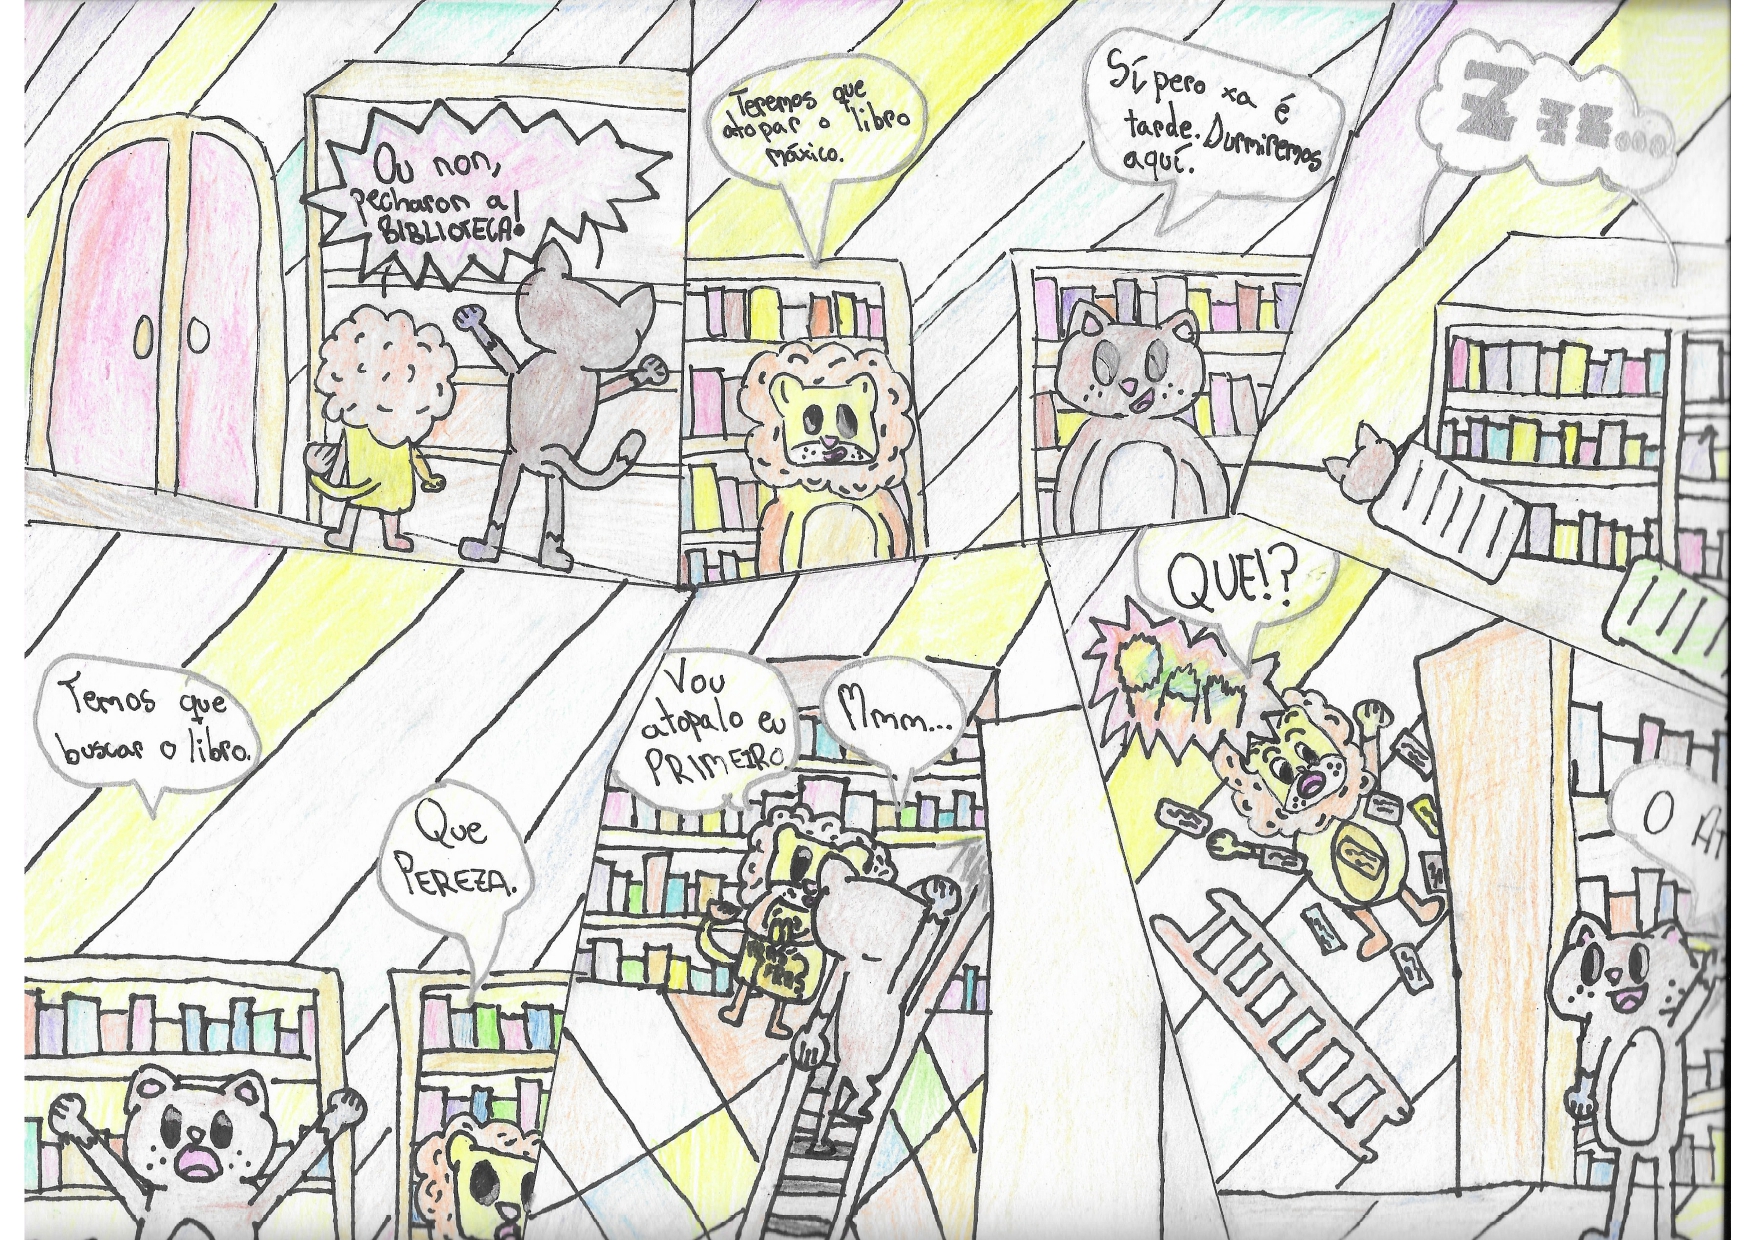 Ou non,
pecharon a
BIBLIOTECA!
Teremos que
atopar o libro
máxico.
Sí pero xa é
tarde. Durmiremos
aquí.
Zzz...
Temos que
buscar o libro.
Que
PEREZA.
Vou
atopalo eu
PRIMEIRO.
Mmm...
QUE!?
O